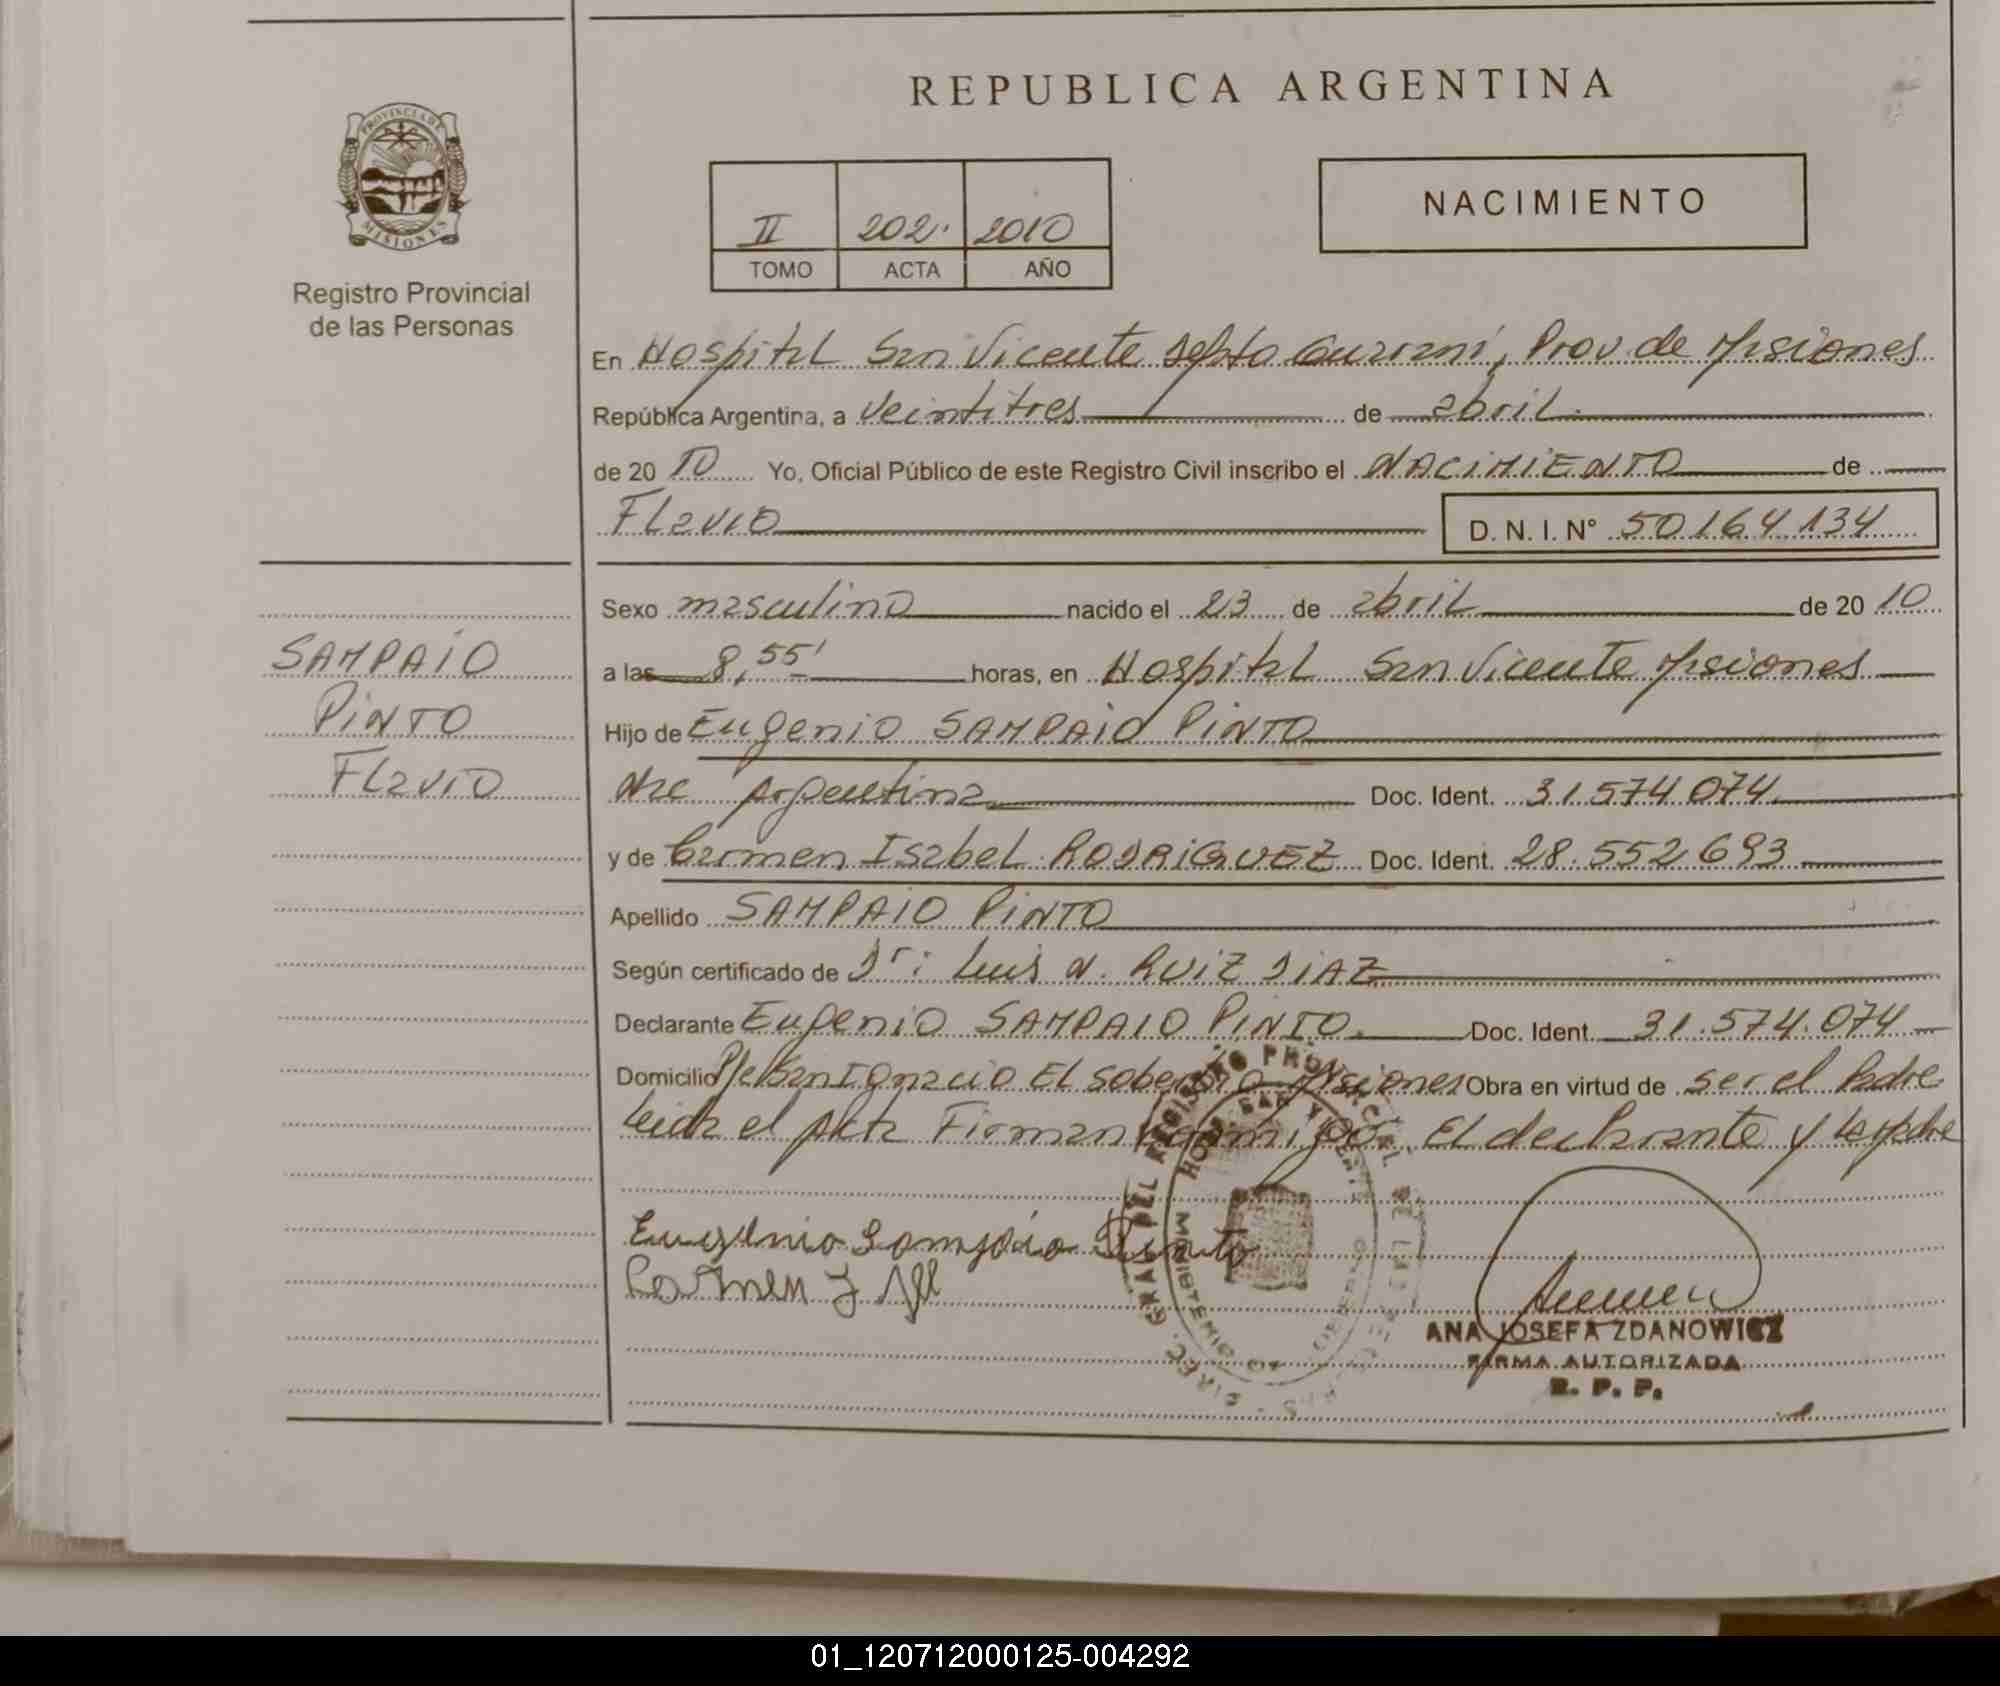 REPUBLICA ARGENTINA
PROVINCIA DE
MISIONES
Registro Provincial
de las Personas
II 202. 2010
TOMO ACTA AÑO
NACIMIENTO
En Hospital San Vicente Depto Guaraní, Prov. de Misiones
República Argentina, a veintitres de abril
de 20 10 Yo, Oficial Público de este Registro Civil inscribo el NACIMIENTO de
Flavio D. N. I. N° 50.164.134
Sexo masculino nacido el 23 de abril de 20 10
a las 8,55' horas, en Hospital San Vicente Misiones
Hijo de Eugenio SAMPAIO PINTO
Nac Argentina Doc. Ident. 31.574.074
y de Carmen Isabel RODRIGUEZ Doc. Ident. 28.552.693
Apellido SAMPAIO PINTO
Según certificado de Dr: Luis N. RUIZ DIAZ
Declarante Eugenio SAMPAIO PINTO. Doc. Ident. 31.574.074
Domicilio San Ignacio El Soberbio Misiones Obra en virtud de ser el Padre
Leida el Acta Firman conmigo. El declarante y la Madre
SAMPAIO
PINTO
Flavio
Eugenio Sampaio Pinto
Carmen I
ANA JOSEFA ZDANOWICZ
FIRMA AUTORIZADA
R. P. P.
01_120712000125-004292